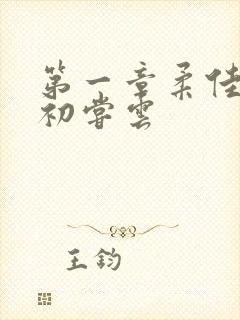 第一章柔佳
初尝云
王钧